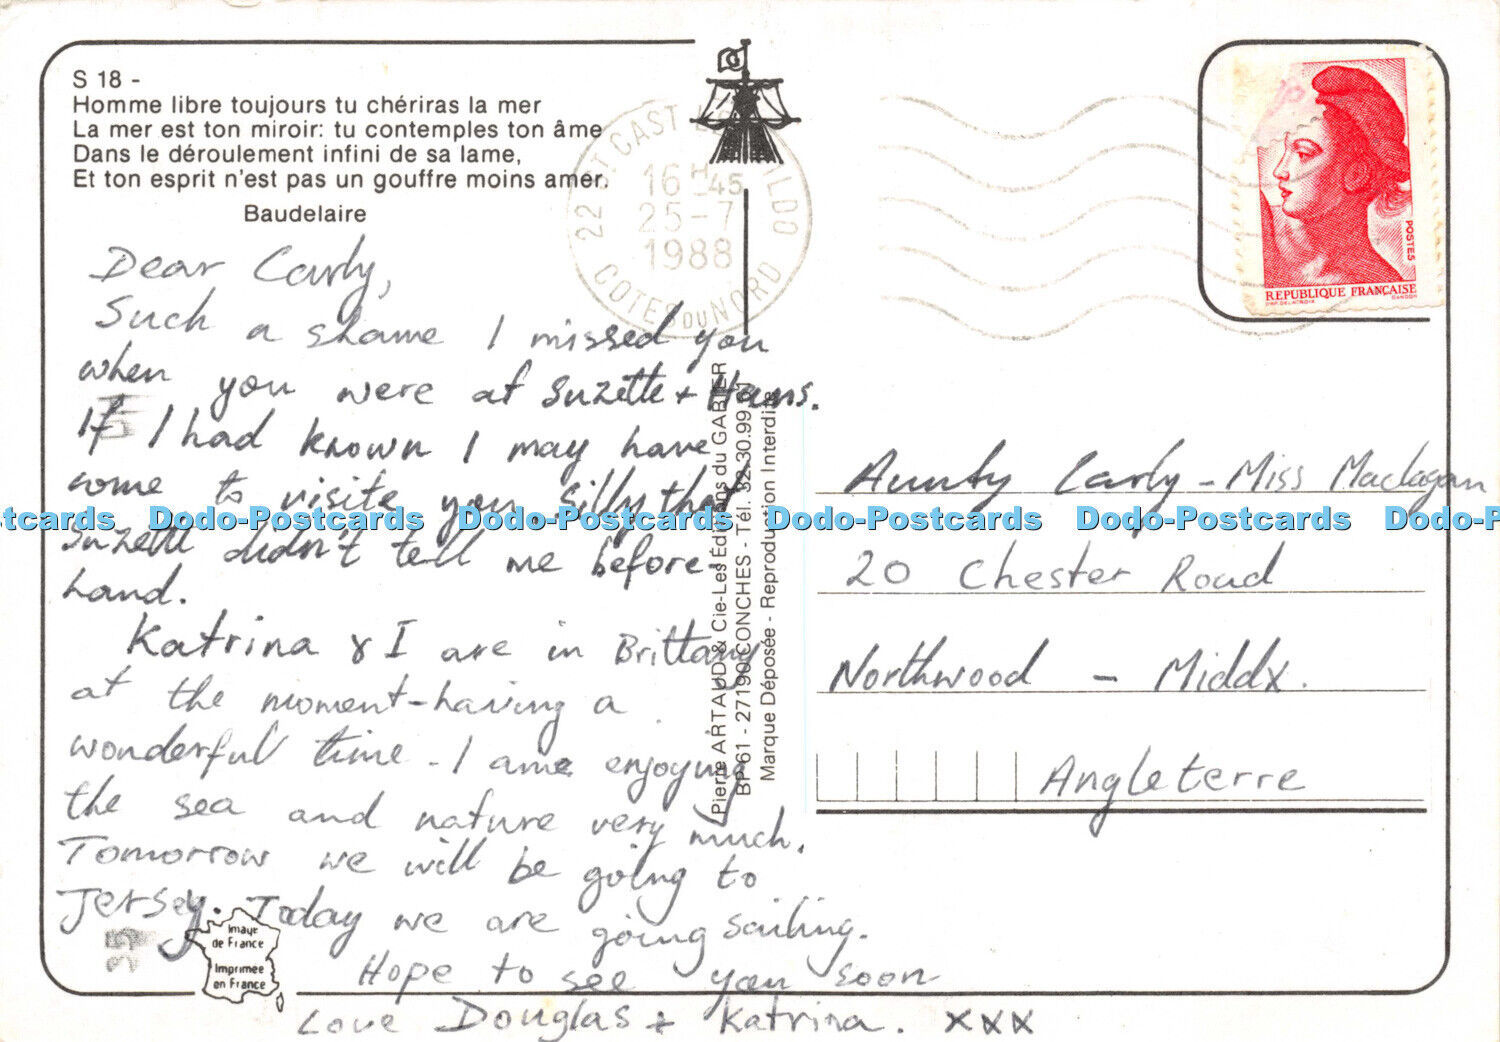 S 18 -
Homme libre toujours tu chériras la mer
La mer est ton miroir: tu contemples ton âme
Dans le déroulement infini de sa lame,
Et ton esprit n'est pas un gouffre moins amer.
Baudelaire
22 ST CAST LE GUILDO
16H45
25-7
1988
COTES DU NORD
POSTES
REPUBLIQUE FRANÇAISE
DAP. DELACROIX GANDON
Dear Carly,
Such a shame I missed you
when you were at Suzette + Hans.
If I had known I may have
come to visite you. Silly that
Suzette didn't tell me before
hand.
Katrina & I are in Brittany
at the moment - having a
wonderful time - I ame enjoying
the sea and nature very much.
Tomorrow we will be going to
Jersey. Today we are going sailing.
Hope to see you soon
Love Douglas + Katrina. xxx
Image
de France
Imprimée
en France
Pierre ARTAUD & Cie-Les Editions du GABIER
BP 61 - 27190 CONCHES - Tél. 32.30.99
Marque Déposée - Reproduction Interdite
Aunty Carly - Miss Maclagan
20 Chester Road
Northwood - Middx.
Angleterre
stcards Dodo-Postcards Dodo-Postcards Dodo-Postcards Dodo-Postcards Dodo-P